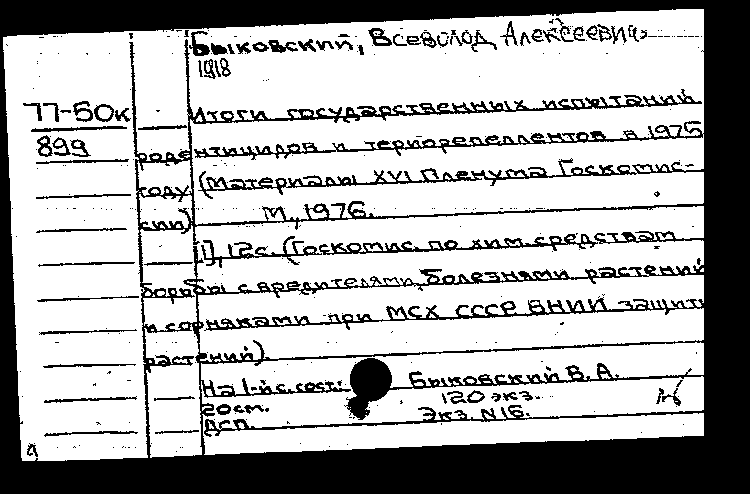 Быковский, Всеволод Алексеевич,
1918
77-50к
899
Итоги государственных испытаний
родентицидов и териорепеллентов в 1975
году (Материалы XVI Пленума Госкомис-
сии)
М., 1976.
[1], 12с. (Госкомис. по хим. средствам
борьбы с вредителями, болезнями растений
и сорняками при МСХ СССР ВНИИ защиты
растений).
На 1-й с. сост.: Быковский В. А.
20см. 120 экз.
ДСП. Экз. N16.